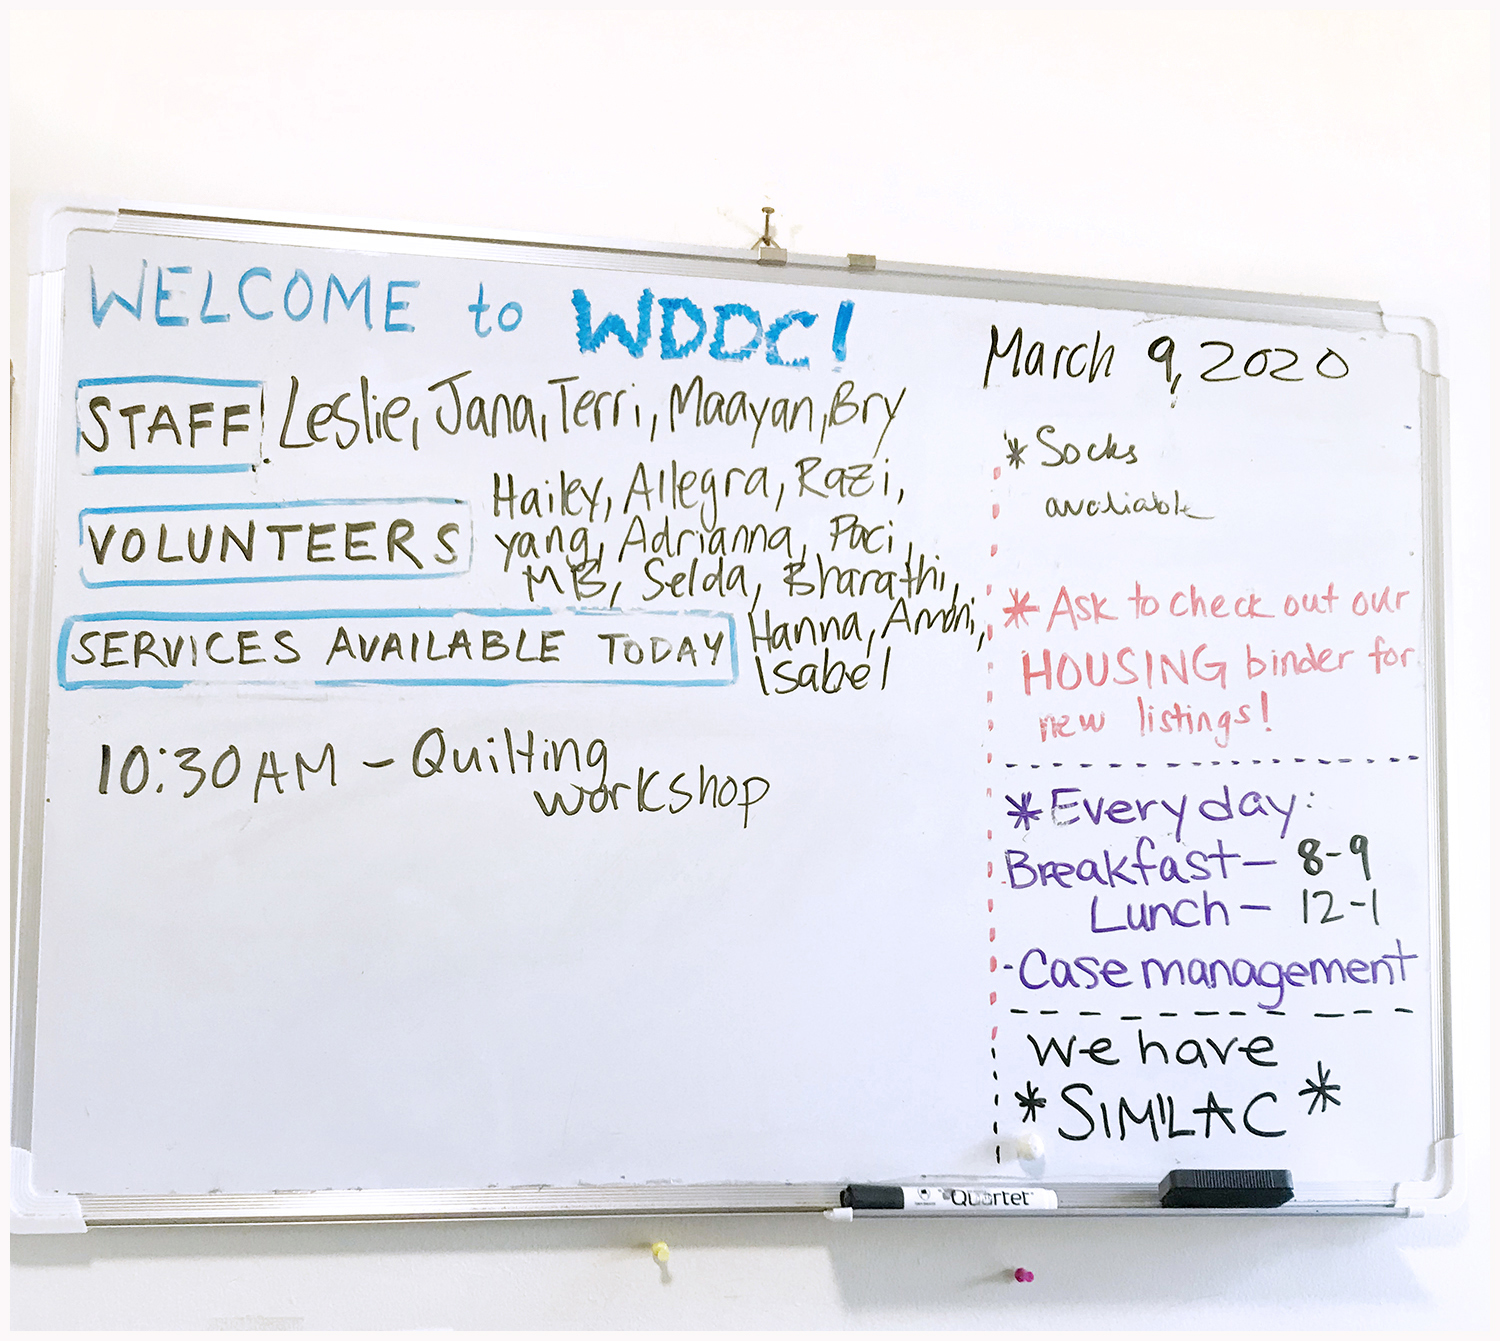 WELCOME to WDDC!
STAFF Leslie, Jana, Terri, Maayan, Bry
VOLUNTEERS
Hailey, Allegra, Razi,
yang, Adrianna, Paci,
MB, Selda, Bharathi,
Hanna, Amohi,
Isabel
SERVICES AVAILABLE TODAY
10:30 AM - Quilting
workshop
March 9, 2020
* Socks
avaliable
* Ask to check out our
HOUSING binder for
new listings!
* Every day:
Breakfast - 8-9
Lunch - 12-1
- Case management
we have
* SIMILAC *
Quartet